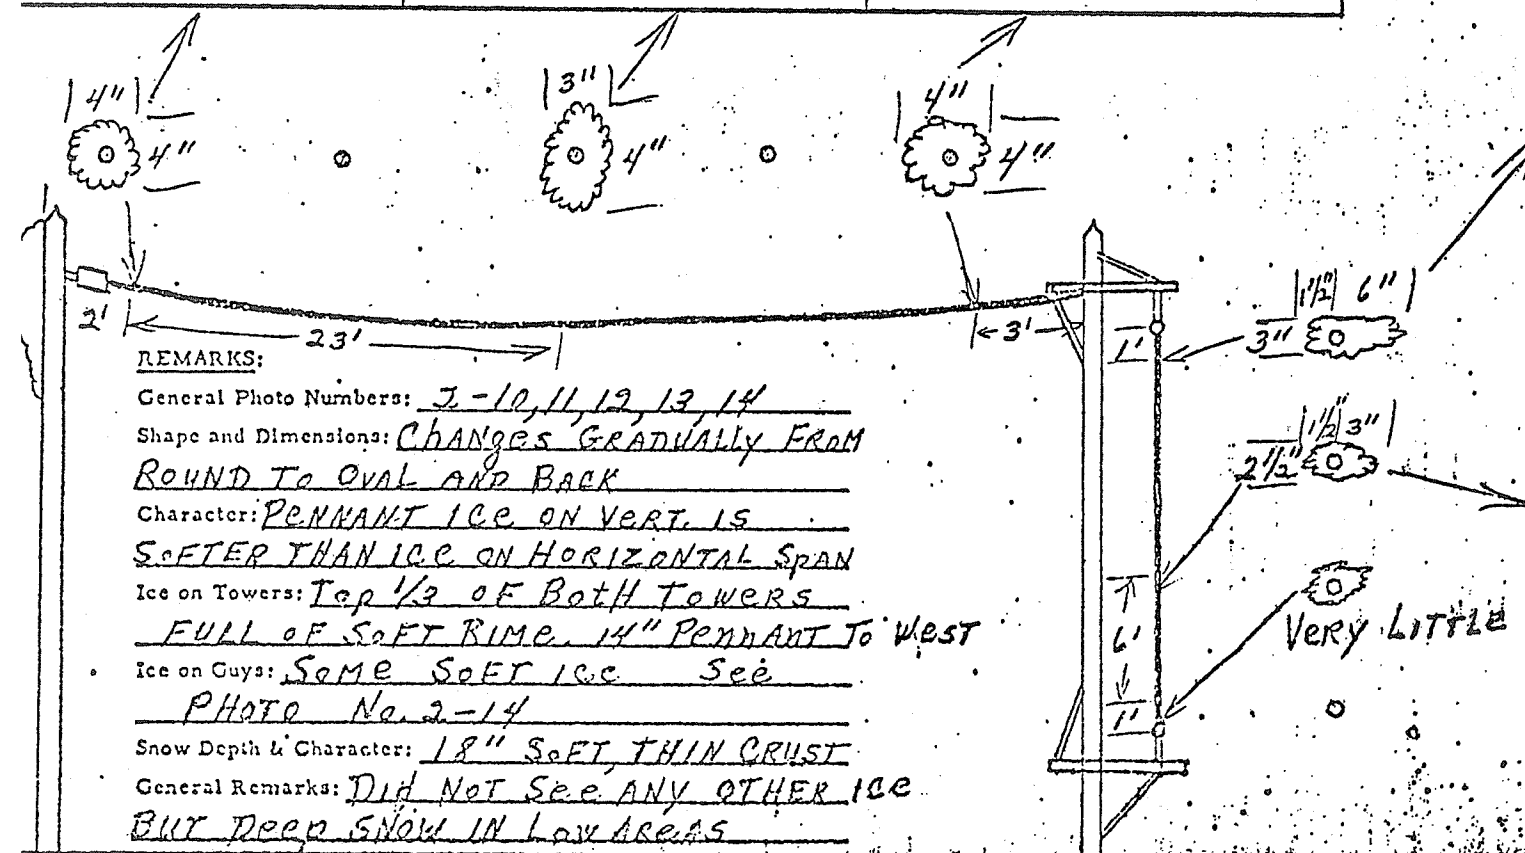 4" 3" 4"
4" 4" 4"
1½" 6"
2' 23' 3' 1' 3"
REMARKS:
General Photo Numbers: 2-10, 11, 12, 13, 14
1½" 3"
Shape and Dimensions: CHANGES GRADUALLY FROM
2½"
ROUND TO OVAL AND BACK
Character: PENNANT ICE ON VERT. IS
SOFTER THAN ICE ON HORIZONTAL SPAN
Ice on Towers: Top 1/3 OF BOTH TOWERS
FULL OF SOFT RIME. 14" PENNANT TO WEST
VERY LITTLE
6'
Ice on Guys: SOME SOFT ICE See
PHOTO No. 2-14
1'
Snow Depth & Character: 18" SOFT, THIN CRUST
General Remarks: DID NOT See ANY OTHER ICE
BUT DEEP SNOW IN LOW AREAS